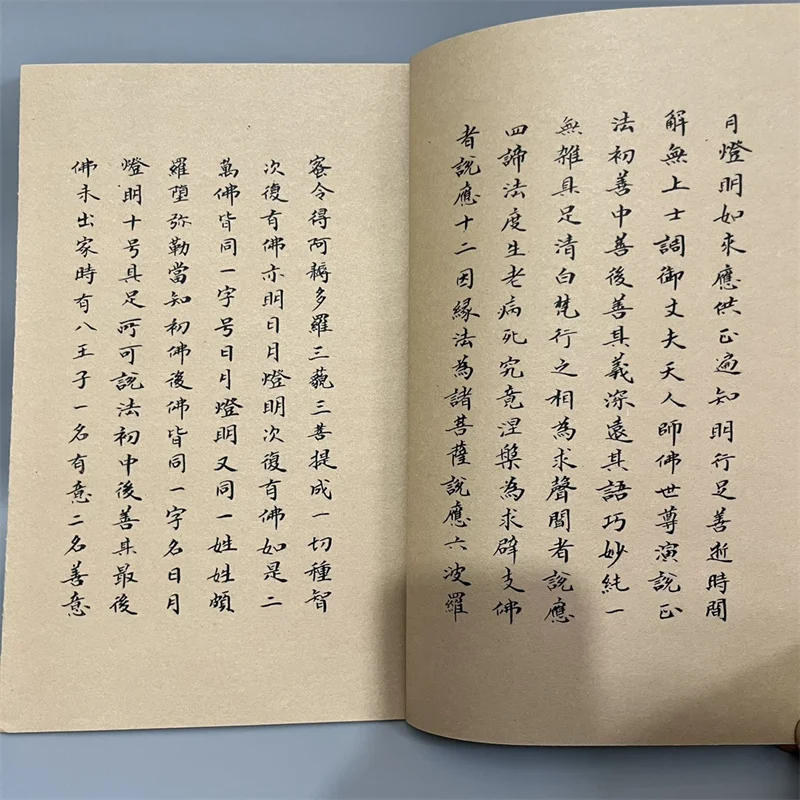 月燈明如来應供正遍知明行足善逝時間
解無上士調御丈夫天人師佛世尊演說正
法初善中善後善其義深遠其語巧妙純一
無雜具足清白梵行之相為求聲聞者說應
四諦法度生老病死究竟涅槃為求辟支佛
者說應十二因縁法為諸菩薩說應六波羅
蜜令得阿耨多羅三藐三菩提成一切種智
次復有佛亦明日月燈明次復有佛如是二
萬佛皆同一字号日月燈明又同一姓姓頗
羅墮弥勒當知初佛後佛皆同一字名日月
燈明十号具足所可說法初中後善具最後
佛未出家時有八王子一名有意二名善意